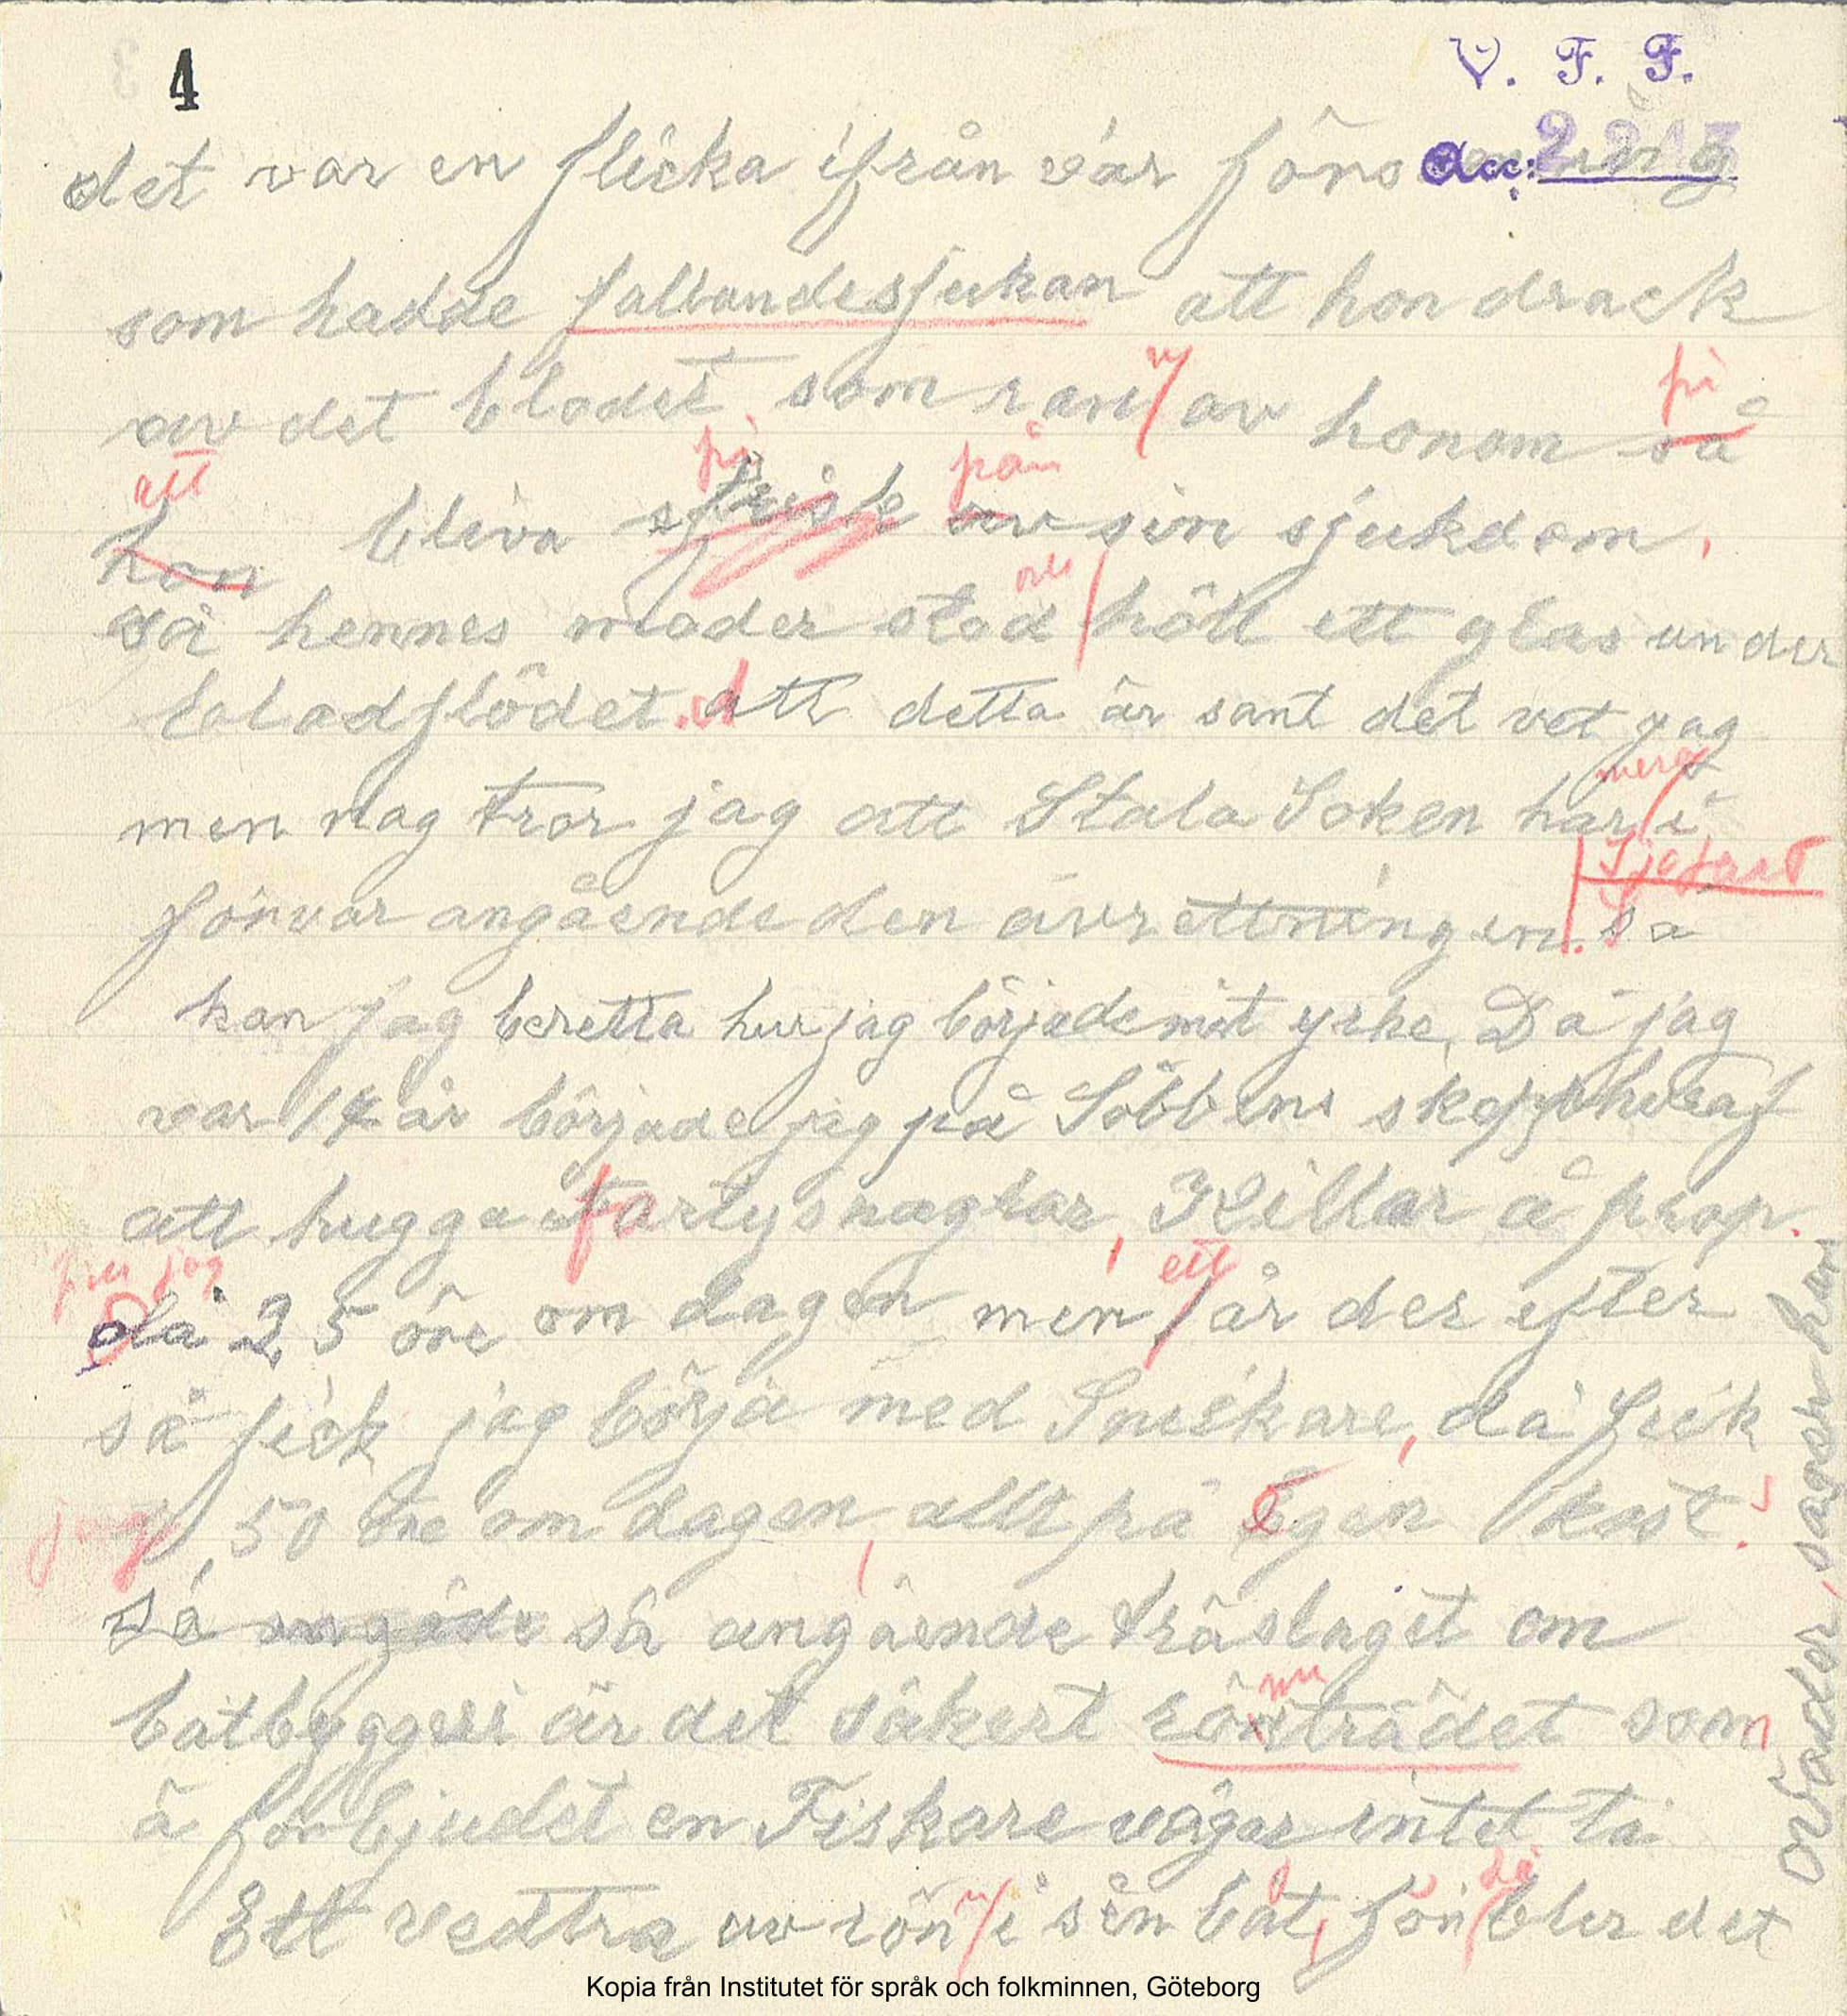 4
V. F. F.
Acc: 2213
det var en flicka ifrån vår
som hadde fallandesjukan att hon drack
av det blodet som ran n av honom så
fri
att
hon bliva frisk av sin sjukdom.
fri från
så hennes moder stod och höll ett glas under
blodflödet. att detta är sant det vet jag
men nog tror jag att Stala Soken har mera i
förvar angående den avrettningen. så
kan jag beretta hur jag började mit yrke, Då jag
var 14 år började jag på Söbbens
att hugga fartysnaglar, Killar å prop.
fick jag
då 25 öre om dagen men ett år der efter
så fick jag börja med Snickare, då fick
jag 50 öre om dagen, allt på Egen kost.
Så angåde så angående träslaget om
båtbyggeri är det säkert rönnträdet som
ä förbjudet en Fiskare vågar intet ta
Ett vedtra av rön n i sin båt, för då bler det
ovader, säger han
Kopia från Institutet för språk och folkminnen, Göteborg